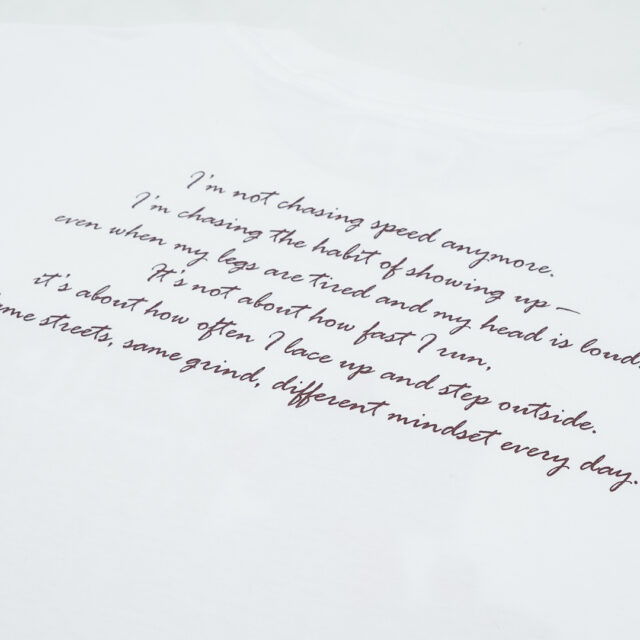 I'm not chasing speed anymore.
I'm chasing the habit of showing up –
even when my legs are tired and my head is loud.
It's not about how fast I run,
it's about how often I lace up and step outside.
streets, same grind, different mindset every day.